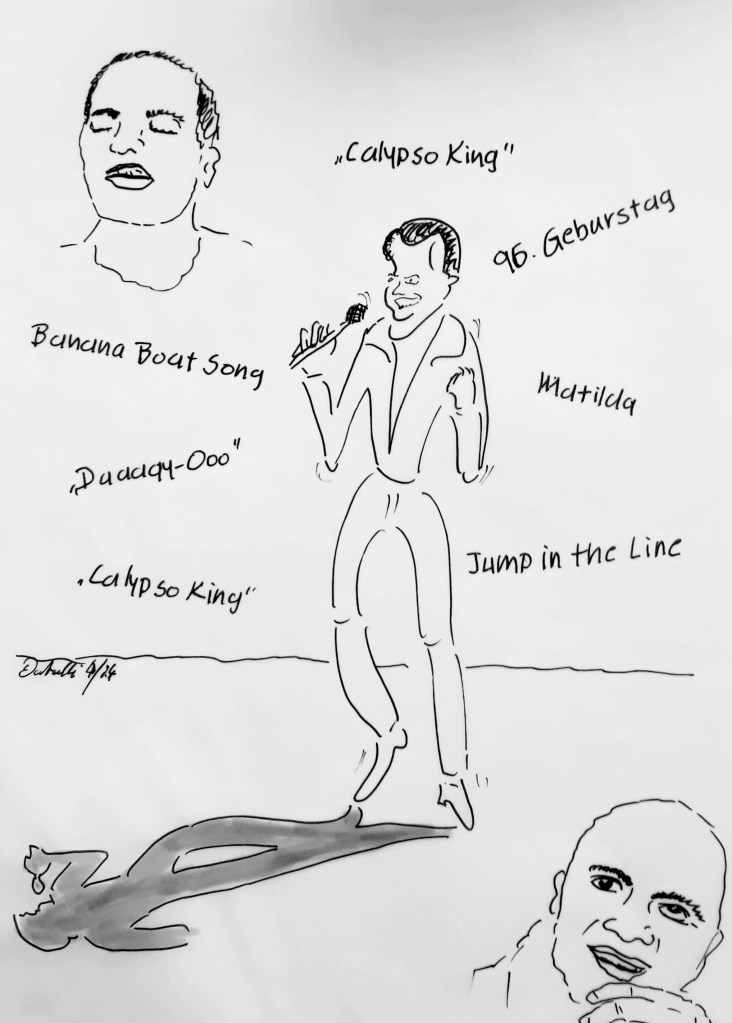 „Calypso King"
96. Geburstag
Banana Boat Song
Matilda
„Daaaay-Ooo"
Jump in the Line
„Calypso King"
4/24